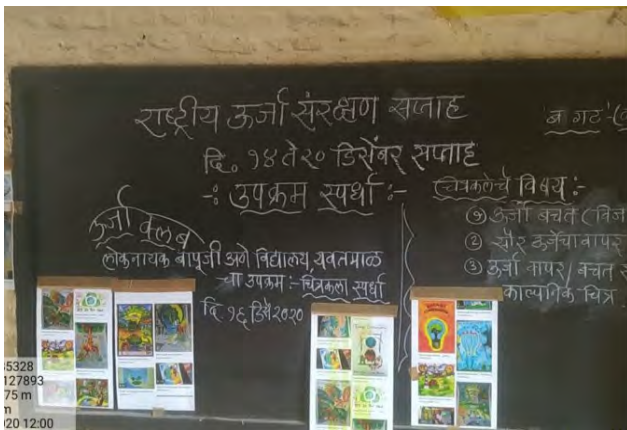 राष्ट्रीय ऊर्जा संरक्षण सप्ताह
दि. १४ ते २० डिसेंबर सप्ताह
-: उपक्रम स्पर्धा :-
ऊर्जा क्लब
लोकनायक बापूजी अणे विद्यालय, यवतमाळ
उपक्रम :- चित्रकला स्पर्धा
दि १६ डिसें २०२०
'ब गट'
चित्रकलेचे विषय :-
① ऊर्जा बचत
② सौर ऊर्जेचा वापर
③ ऊर्जा वापर / बचत
काल्पनिक चित्र
65328
127893
75 m
m
020 12:00